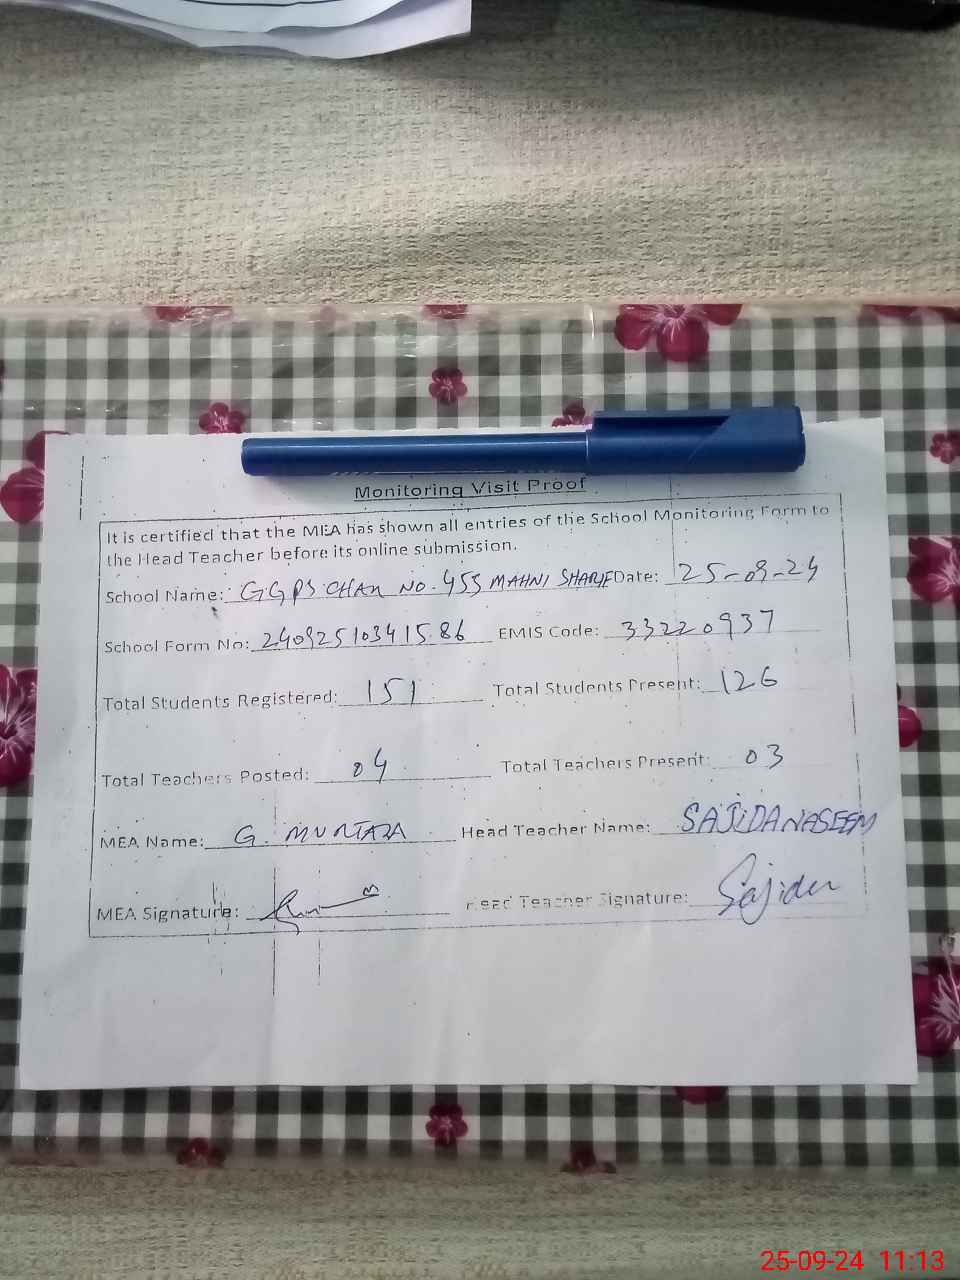 Monitoring Visit Proof
It is certified that the MEA has shown all entries of the School Monitoring Form to
the Head Teacher before its online submission.
School Name: GGPS CHAK NO. 455 MAHNI SHARIF Date: 25-09-24
School Form No: 24092510341586 EMIS Code: 33220937
Total Students Registered: 151 Total Students Present: 126
Total Teachers Posted: 04 Total Teachers Present: 03
MEA Name: G. MURTAZA Head Teacher Name: SAJIDA NASEEM
MEA Signature: Head Teacher Signature: Sajida
25-09-24 11:13